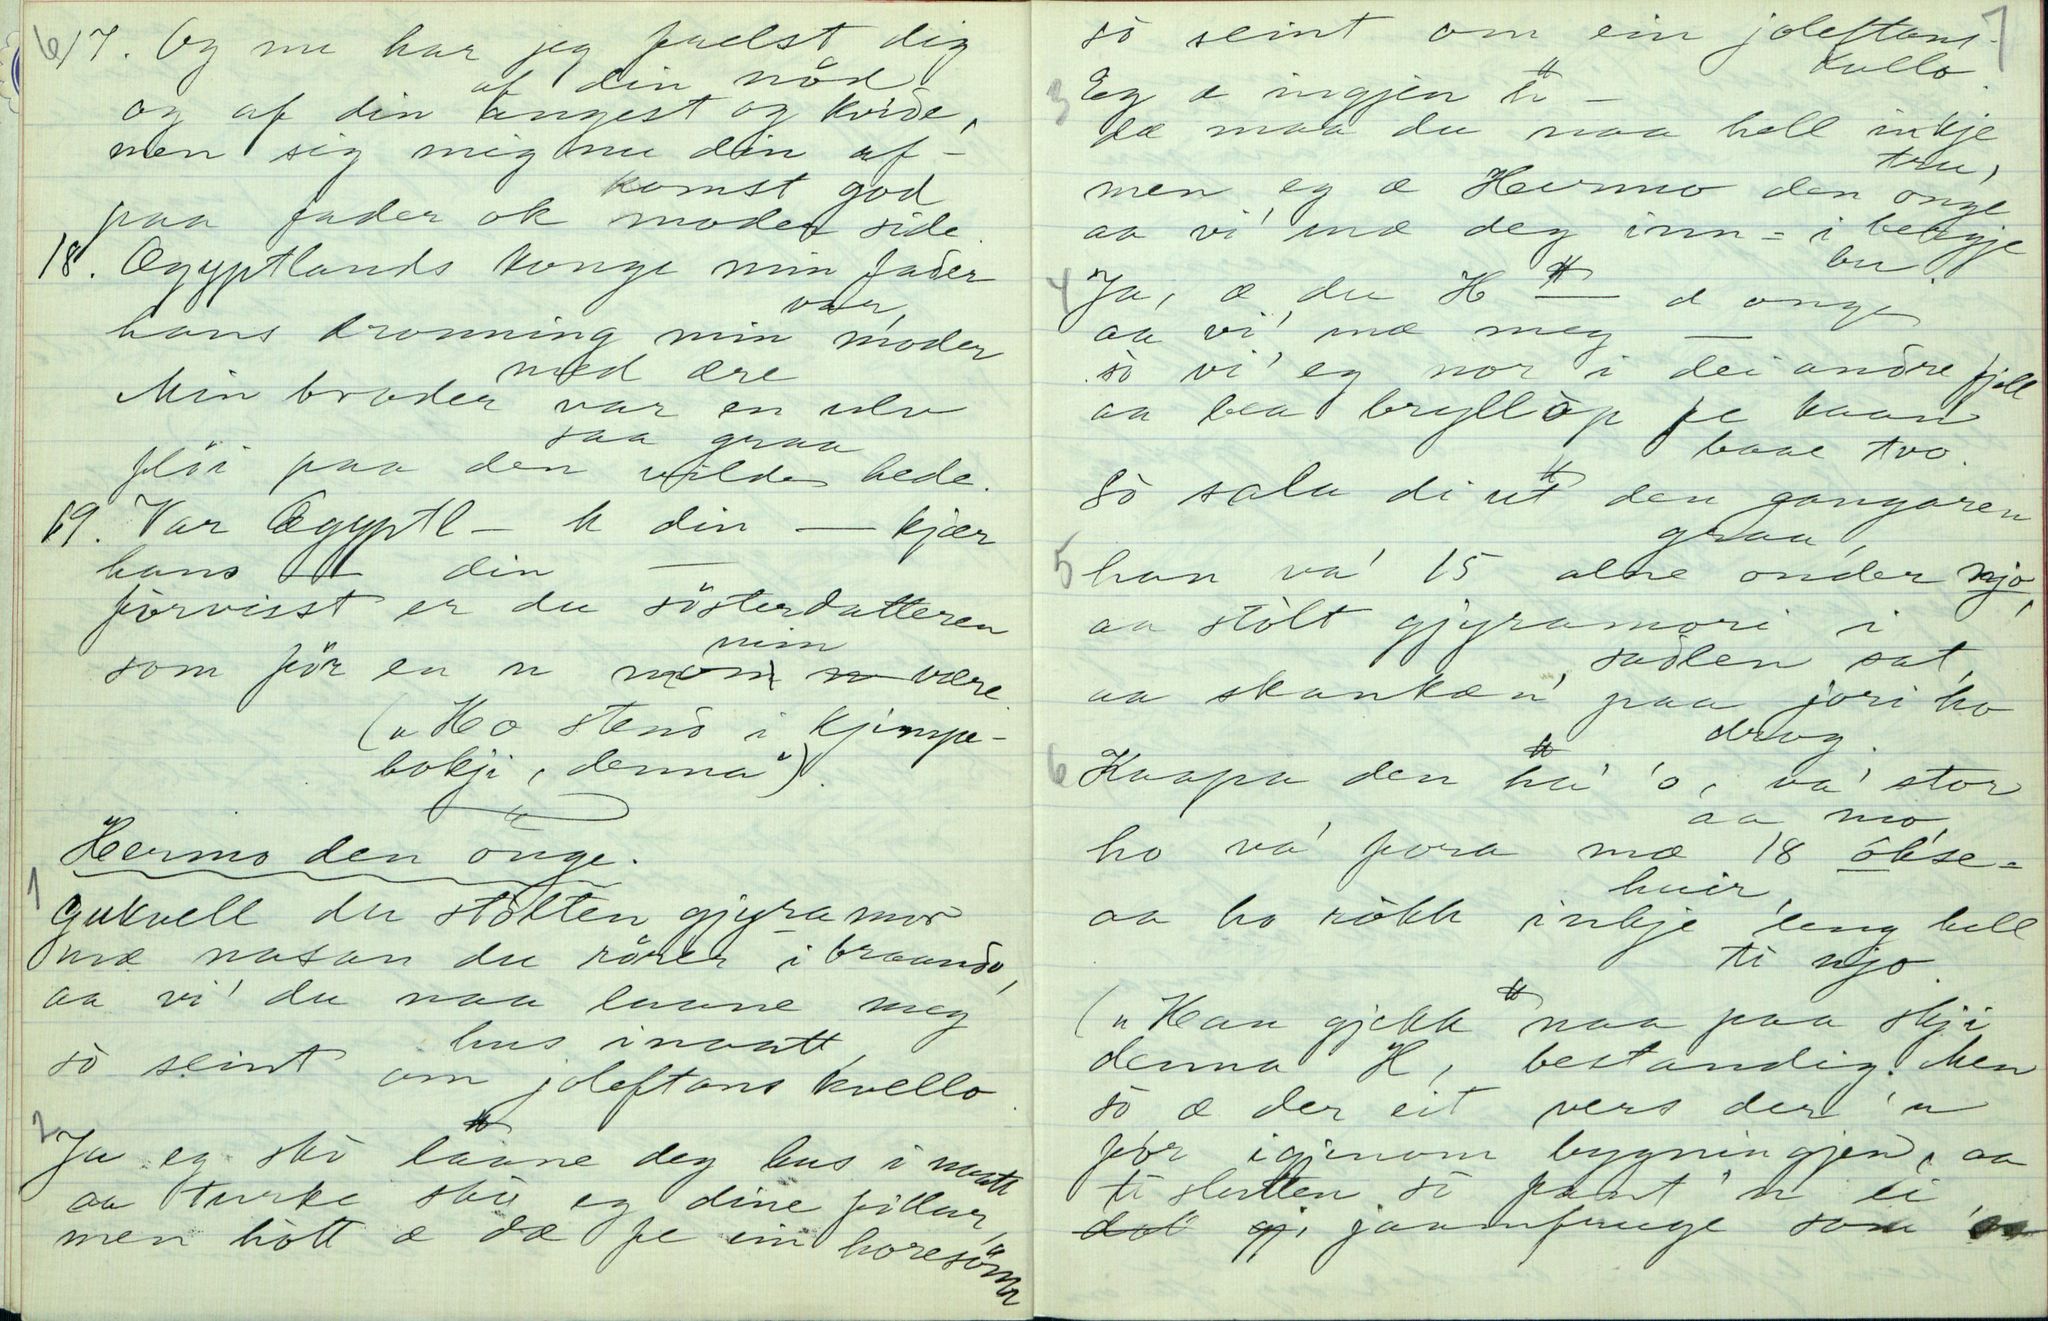 6/
17. Og nu har jeg frelst dig
af din nöd
og af din angest og kvide,
men sig mig nu din af-
komst god
paa fader ok moder side.
18. Ægyptlands konge min fader
var,
hans dronning min moder
med ære
Min broder var en ulv
saa graa
flöi paa den vilde hede.
19. Var Ægyptl – k din — kjær
hans — din —
forvisst er du sösterdatteren
min
som för en n mon være.
(„Ho stend i kjimpe-
bokji, denna").
Hermo den onge.
1
Gukvell du stolten gjyramor
mæ nasan du rörer i brando,
aa vi' du naa laane meg
hus i naatt
so seint om joleftans kvello.
2
Ja eg sko laane deg hus i naatt
aa turke sko eg dine fillar,
men hott æ dæ fe ein horesöna
7
so seint om ein joleftans-
kvello.
3
Eg æ ingjen h –
dæ maa du naa hell inkje
tru,
men eg æ Hermo den onge
aa vi' mæ deg inn = i beggje
bu.
4
Ja, æ du H — d onge
aa vi' mæ meg —
so vi' eg nor i dei andre fjell
aa bea bryllöp fe kaan
baae tvo.
So sala di ut den gangaren
graa,
5
han va' 15 alne onder njo,
aa stolt gjyramori i
sadlen sat,
aa skankæn' paa jori ho
drog.
6
Kaapa den ha' 'o, va' stor
aa mo
ho va' fora mæ 18 okse=
huir,
aa ho rökk inkje leng hell
ti njo.
(„Han gjekk naa paa skji
denna H, bestandig. Men
so æ der eit vers der 'n
för igjenom bygningjen, aa
ti slutten so fant 'n ei
jaamfruge som